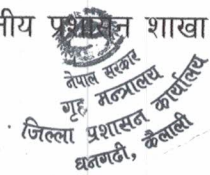 नीय प्रशासन शाखा
नेपाल सरकार
गृह मन्त्रालय
जिल्ला प्रशासन कार्यालय
धनगढी, कैलाली